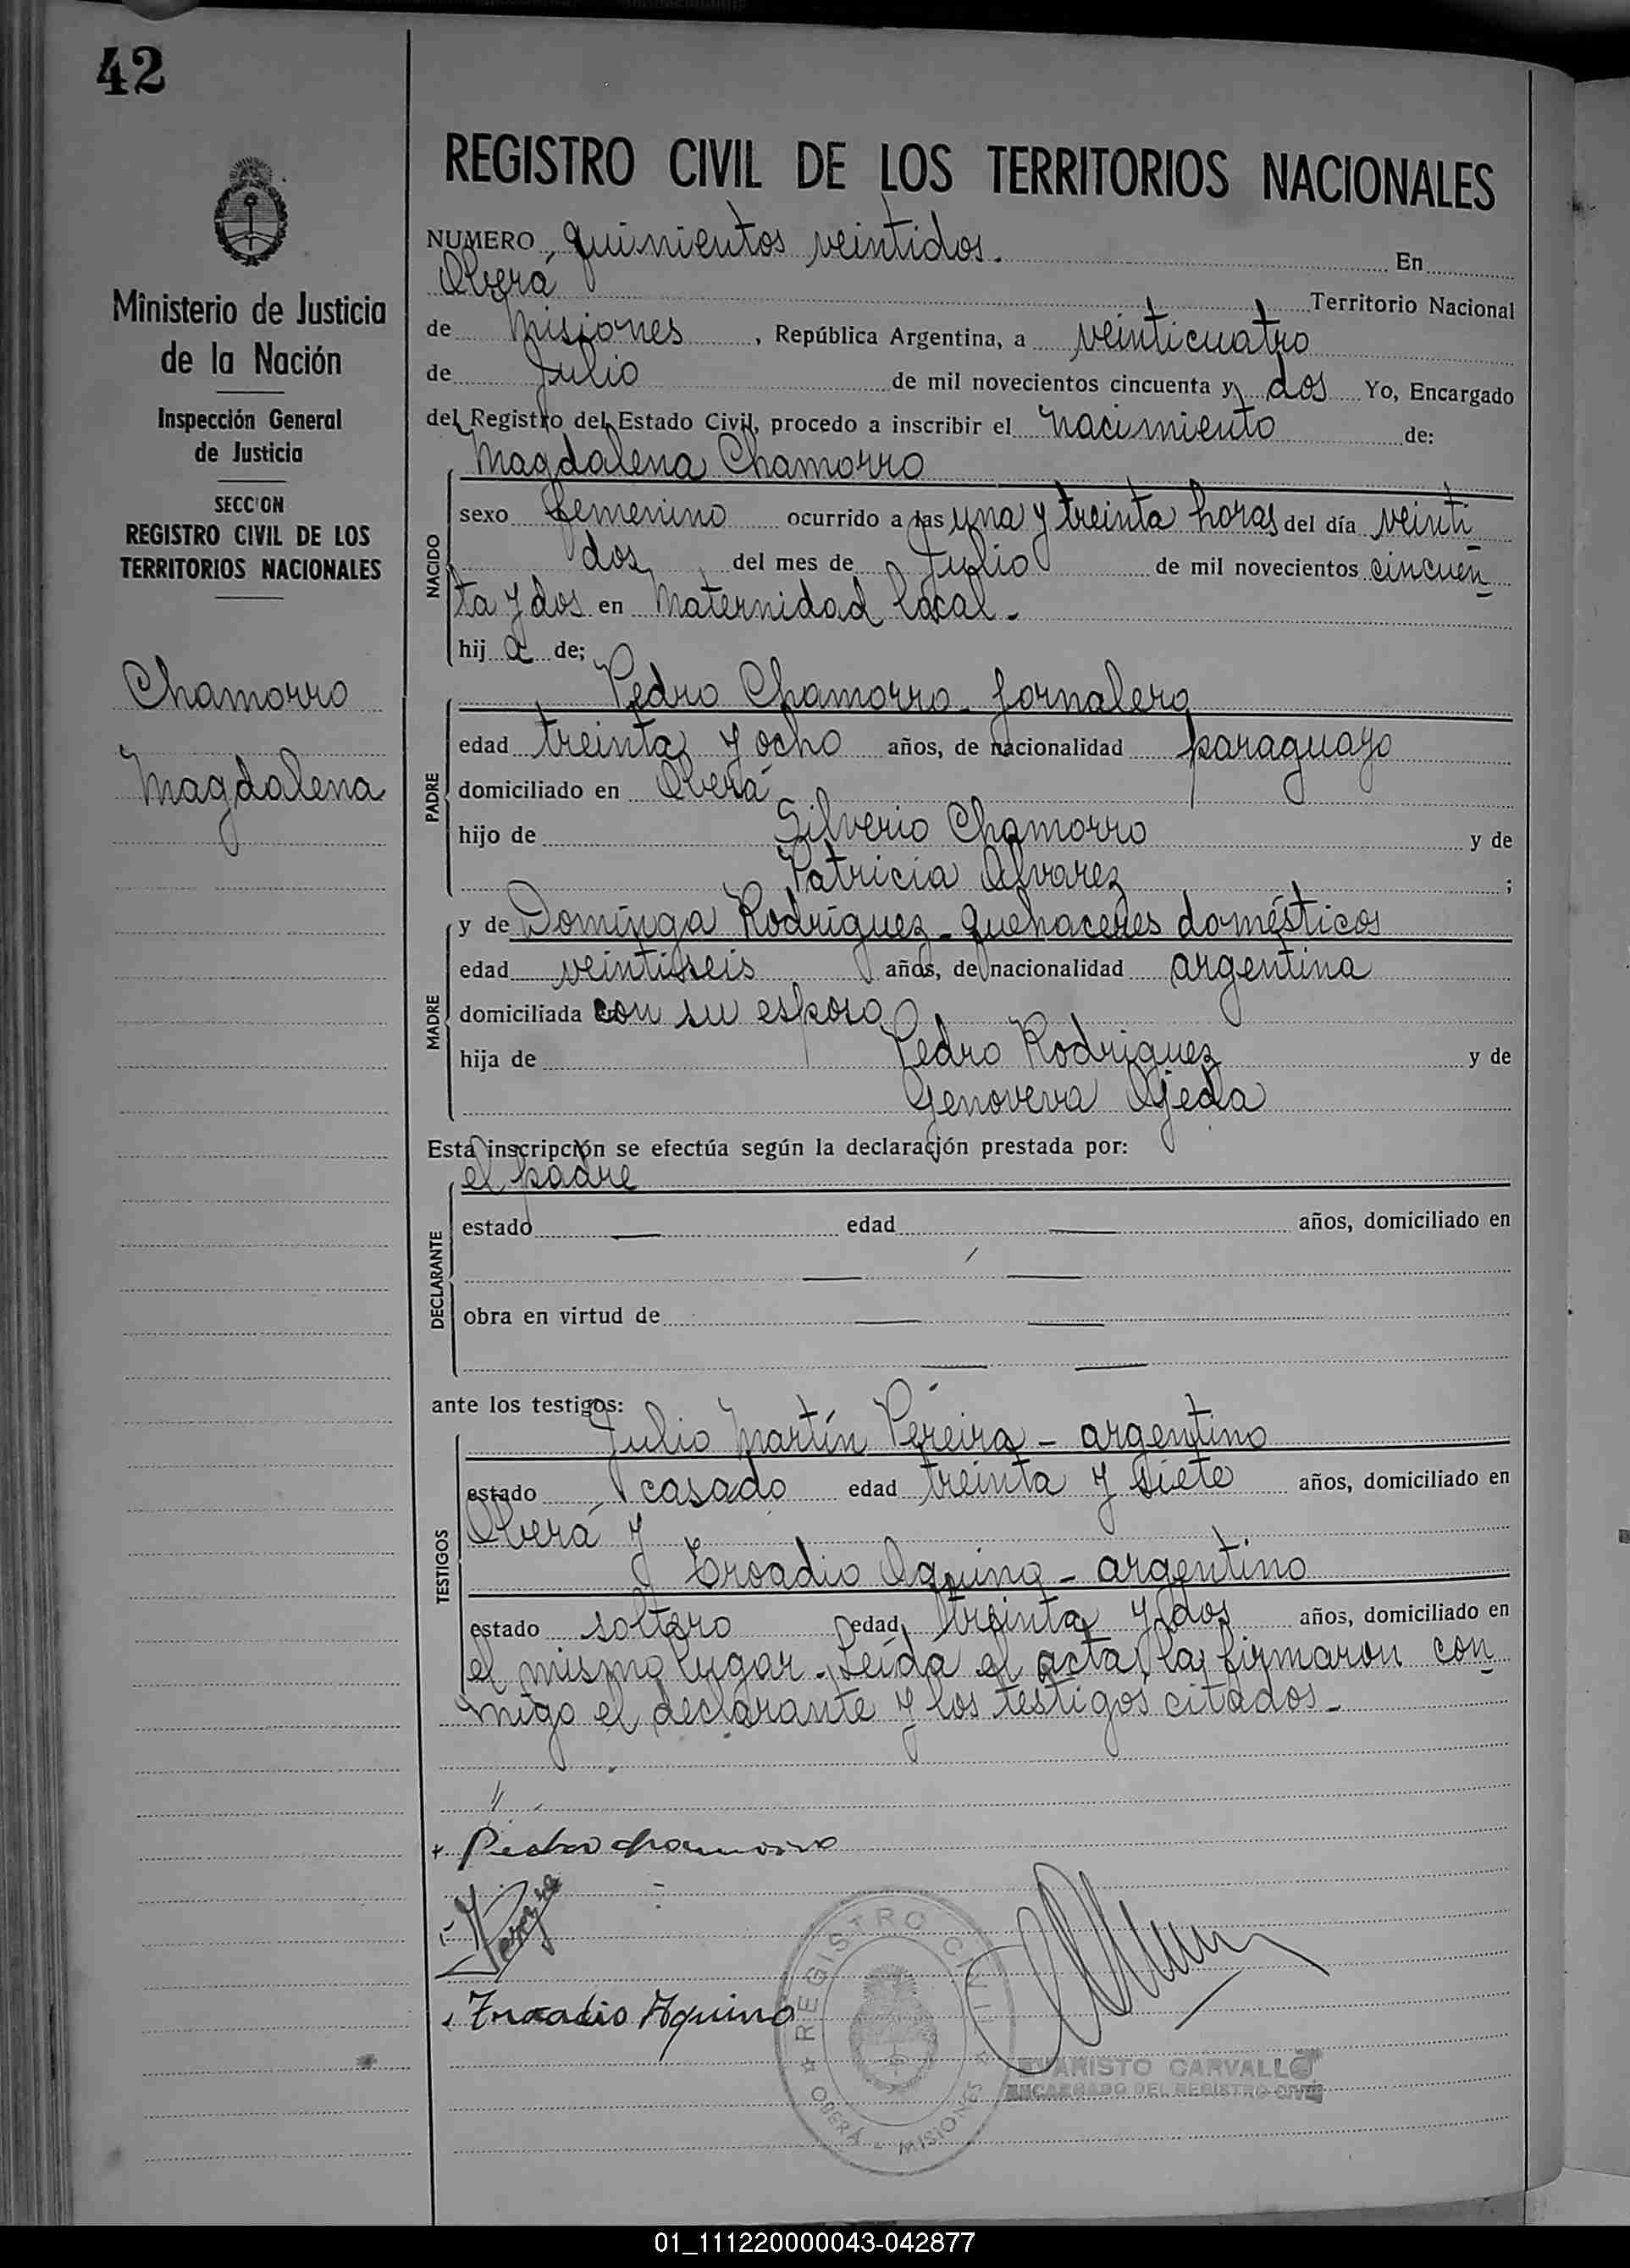 42
Ministerio de Justicia
de la Nación
Inspección General
de Justicia
SECCION
REGISTRO CIVIL DE LOS
TERRITORIOS NACIONALES
Chamorro
Magdalena
REGISTRO CIVIL DE LOS TERRITORIOS NACIONALES
NUMERO quinientos veintidos. En
Oberá Territorio Nacional
de Misiones, República Argentina, a veinticuatro
de Julio de mil novecientos cincuenta y dos Yo, Encargado
del Registro del Estado Civil, procedo a inscribir el nacimiento de:
NACIDO
Magdalena Chamorro
sexo femenino ocurrido a las una y treinta horas del día veinti
dos del mes de Julio de mil novecientos cincuen
ta y dos en Maternidad local.
hij a de;
PADRE
Pedro Chamorro - Jornalero
edad treinta y ocho años, de nacionalidad paraguayo
domiciliado en Oberá
hijo de Silverio Chamorro y de
Patricia Alvarez ;
MADRE
y de Dominga Rodríguez - quehaceres domésticos
edad veintiseis años, de nacionalidad argentina
domiciliada con su esposo
hija de Pedro Rodriguez y de
Genoveva Ojeda
Esta inscripción se efectúa según la declaración prestada por:
DECLARANTE
el padre
estado — edad — años, domiciliado en
— —
obra en virtud de — —
— —
ante los testigos:
TESTIGOS
Julio Martín Pereira - argentino
estado casado edad treinta y siete años, domiciliado en
Oberá y
Troadio Aquino - argentino
estado soltero edad treinta y dos años, domiciliado en
el mismo lugar. Leída el acta, la firmaron con
migo el declarante y los testigos citados -
Pedro Chamorro
Troadio Aquino
REGISTRO CIVIL
OBERÁ - MISIONES
EVARISTO CARVALLO
ENCARGADO DEL REGISTRO CIVIL
01_111220000043-042877